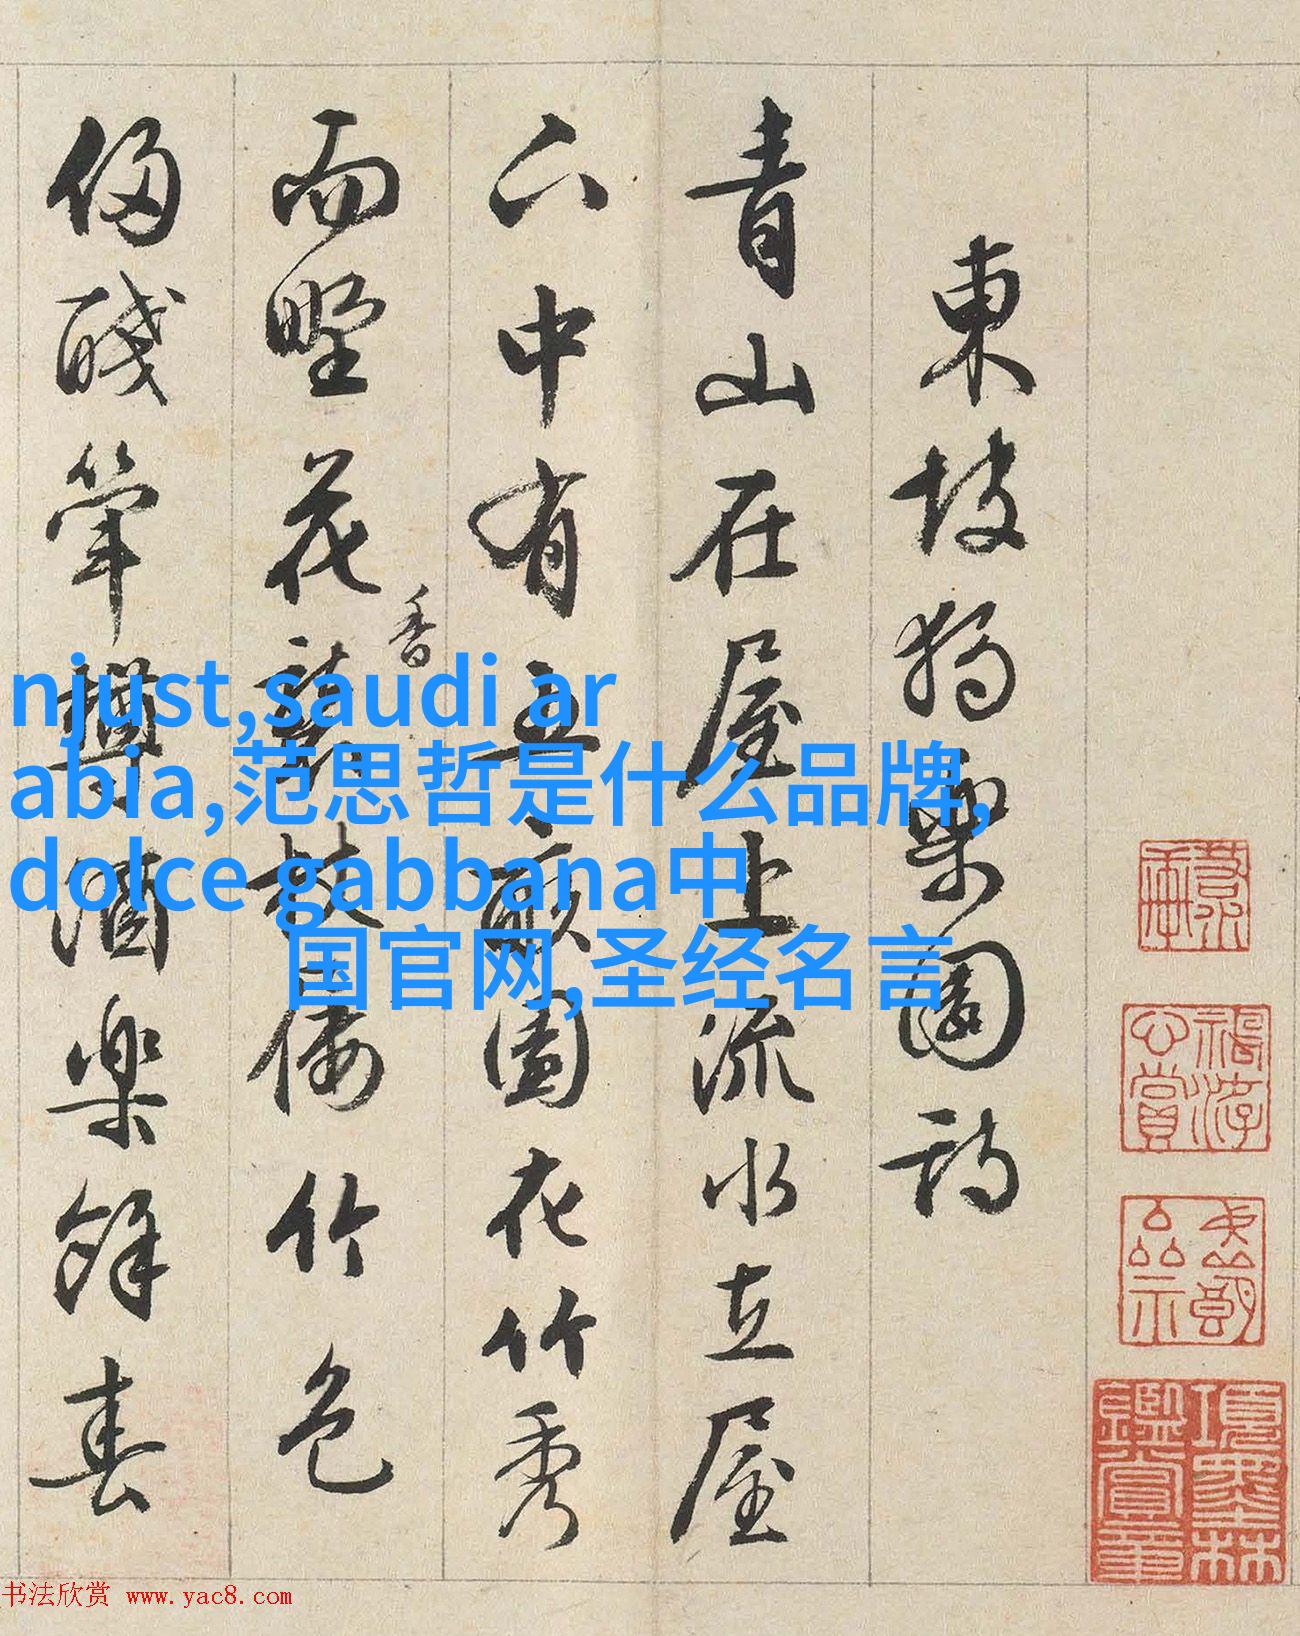 東坡獨樂園詩
青山在屋上流水立屋
下中有五畝園花竹秀
而野花香襲杖屨竹色
侵醆斝樽酒樂餘春
香
njust,saudi ar
abia,范思哲是什么品牌,
dolce gabbana中
国官网,圣经名言
項墨林
鑑賞章
书法欣赏 www.yac8.com